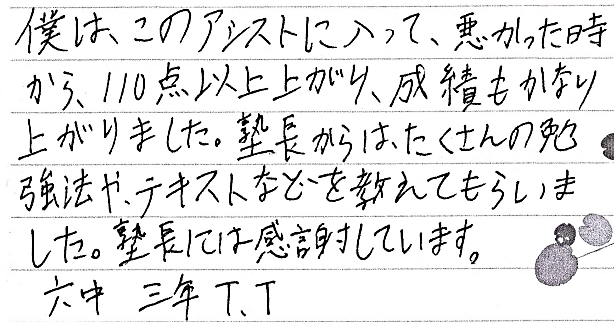 僕は、このアシストに入って、悪かった時
から、110点以上上がり、成績もかなり
上がりました。塾長からは、たくさんの勉
強法や、テキストなどを教えてもらいま
した。塾長には感謝しています。
六中 三年 T.T